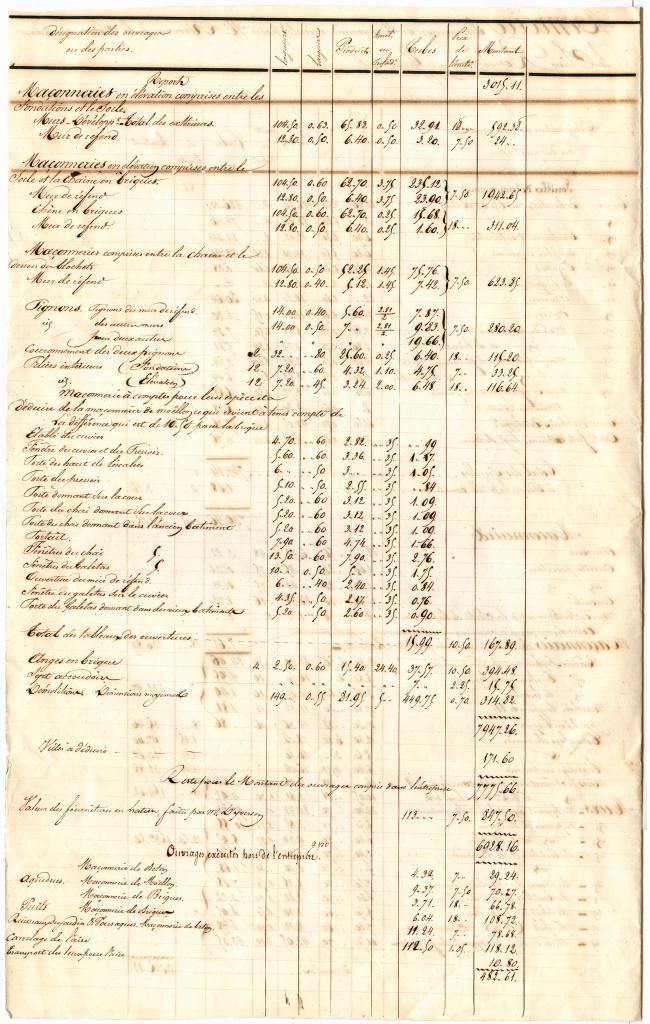 Désignation des ouvrages ou des parties. Longueur Largeur Produits Cubes Prix de l'unité Montant
Report 3015.11.
Maçonneries en élévation comprises entre les
fondations et le Socle.
Murs Dévelop.t total des extérieurs. 104.50 0.63. 65.83. 0.50 32.91 18... 592.38
Mur de refend 12.80 0.50. 6.40. 0.50. 3.20. 7.50 24...
Maçonneries en élévation comprises entre le
Socle et la chaine en briques. 104.50 0.60 62.70. 3.75 235.12
Mur de refend 12.80 0.50. 6.40 3.75 23.90 7.50 1942.65
Chêne en briques 104.50 0.60 62.70 0.25 15.68
Mur de refend 12.80 0.50 6.40 0.25 1.60 18... 311.04
Maçonneries comprises entre la chaine et le
dessus du Clochets 104.50 0.50 52.25 1.45 75.76
Mur de refend 12.80 0.40 5.12 1.45 7.42 7.50 623.85
Pignons. Pignons du mur de refend. 14.00 0.40 5.60 2.81/2 7.87
id des autres murs 14.00 0.50 7... 2.81/2 9.83 7.50 280.20
pour deux autres 19.66
Couronnement des deux pignons 2. 32... ..80 25.60 0.25 6.40 18... 115.20
Piliers intérieurs (Fondation) 12 7.20 ..60 4.32 1.10 4.75 7... 33.25
id. (Elévation) 12 7.20 ..45 3.24 2.00 6.48 18... 116.64
Maçonnerie à compter pour leurs épaisseurs
Déduire de la maçonnerie de moëllons qui revient à tenir compte de
la différence qui est de 10.50 pour la brique
Etable du cuvier 4.70 ..60 2.82 ..35 ..99
Fenêtre du cuvier et du Pressoir. 5.60 ..60 3.36 ..35 1.17
Porte du haut de l'escalier 6... ..50 3... ..35 1.05
Porte du pressoir 5.10 ..50 2.55 ..35 ..84
Porte donnant sur la cour 5.20 ..60 3.12 ..35 1.09
Porte du chais donnant sur la cour 5.20 ..60 3.12 ..35 1.09
Porte du chais donnant dans l'ancien batiment 5.20 ..60 3.12 ..35 1.09
Portail. 7.90 ..60 4.74 ..35 1.66
Fenêtres du chais 5 13.50 ..60 7.90 ..35 2.76
Fenêtres du Galetas 5 10... ..50 5... ..35 1.75
Ouverture du mur de refend. 6... ..40 2.40 ..35 0.84
Fenêtre du galetas sur le cuvier 4.35 ..50 2.17 ..35 0.76
Porte du galetas donnant dans le vieux batiment 5.20 ..50 2.60 ..35 0.90
Total des tableaux des ouvertures 15.99 10.50 167.89
Auges en brique 4 2.50 0.60 15.40 24.40 37.57 10.50 394.48
7... 2.25 15.75
Démolitions Dimensions moyennes 149... 0.55 81.95 5... 449.75 0.70 314.82
7947.26
à déduire 171.60
Reste pour le Montant des ouvrages compris dans l'entreprise 7775.66
Valeur des fournitures en nature faites par Mr 113... 7.50 847.50
6928.16
Ouvrages exécutés hors de l'entreprise
Maçonnerie de béton 4.32 7... 29.24
Aqueducs. Maçonnerie de Moëllon 9.37 7.50 70.27
Maçonnerie de Briques 3.71 18... 66.78
Puits Maçonnerie de Briques 6.04 18... 108.72
Maçonnerie de béton 11.24 7... 78.68
Carrelage de l'aire 112.50 1.05 118.12
Transport des terres pour l'aire 10.80
482.61